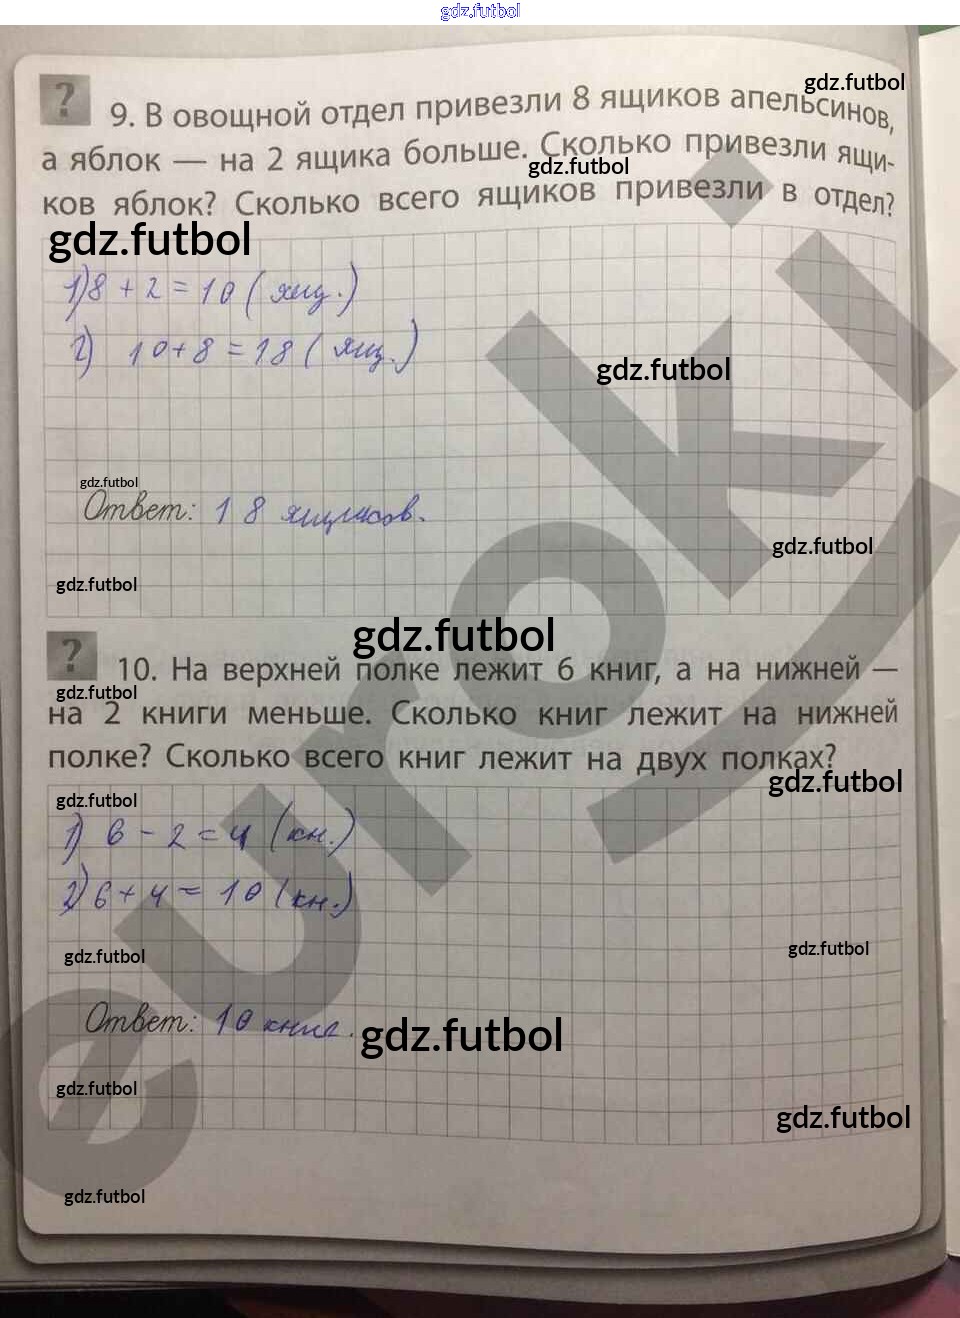 gdz.futbol
gdz.futbol
? 9. В овощной отдел привезли 8 ящиков апельсинов,
а яблок — на 2 ящика больше. Сколько привезли ящи-
gdz.futbol
ков яблок? Сколько всего ящиков привезли в отдел?
gdz.futbol
1) 8 + 2 = 10 ( ящ. )
2) 10 + 8 = 18 ( ящ. )
gdz.futbol
gdz.futbol
Ответ: 18 ящиков.
gdz.futbol
gdz.futbol
gdz.futbol
? 10. На верхней полке лежит 6 книг, а на нижней —
gdz.futbol
на 2 книги меньше. Сколько книг лежит на нижней
полке? Сколько всего книг лежит на двух полках?
gdz.futbol
gdz.futbol
1) 6 - 2 = 4 (кн.)
2) 6 + 4 = 10 (кн.)
gdz.futbol
gdz.futbol
Ответ: 10 книг.
gdz.futbol
gdz.futbol
gdz.futbol
gdz.futbol
euroki